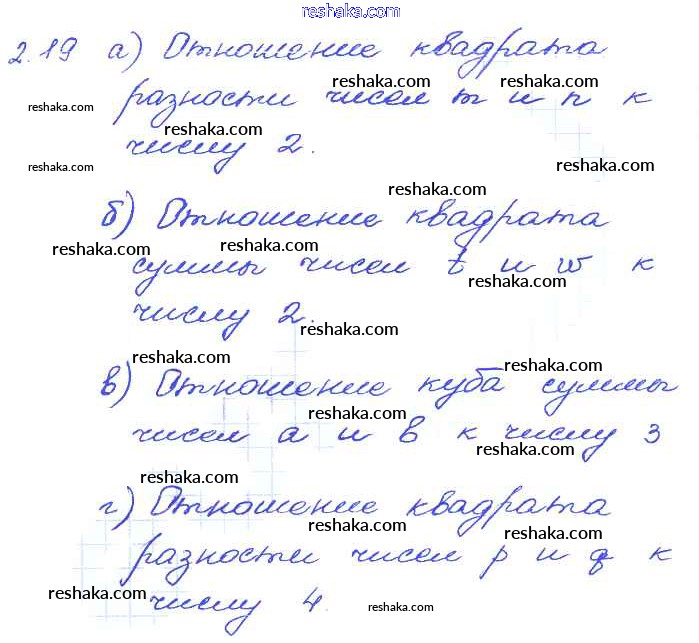 reshaka.com
2.19 а) Отношение квадрата
reshaka.com reshaka.com
reshaka.com разности чисел m и n к
reshaka.com
reshaka.com числу 2. reshaka.com
reshaka.com
б) Отношение квадрата
reshaka.com reshaka.com
суммы чисел t и w к
reshaka.com
числу 2.
reshaka.com
reshaka.com reshaka.com
в) Отношение куба суммы
reshaka.com
чисел a и b к числу 3
reshaka.com
reshaka.com
г) Отношение квадрата
reshaka.com reshaka.com
разности чисел p и q к
reshaka.com reshaka.com
числу 4. reshaka.com